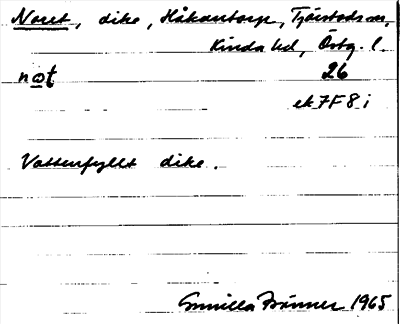 Noret, dike, Håkantorp, Tjärstads sn,
Kinda hd, Östg. l.
nøt 26
ek 7F8i
Vattenfyllt dike.
Gunilla Fränner 1965